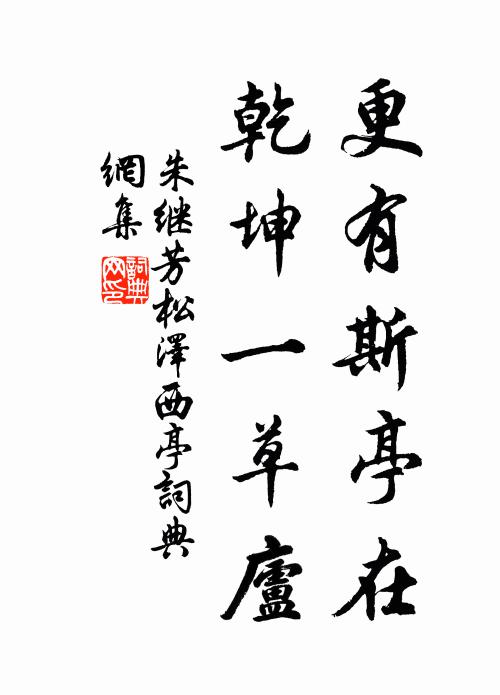 更有斯亭在
乾坤一草廬
朱继芳松澤西亭詞典
網集
詞典
网印